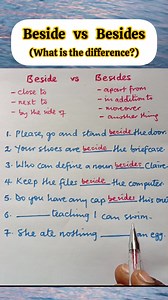 Beside vs Besides
(What is the difference?)
Beside vs Besides
- close to - apart from
- next to - in addition to
- by the side of - moreover
- another thing
1. Please, go and stand beside the door
2. Your shoes are beside the briefcase
3. Who can define a noun besides Claire
4. Keep the files beside the computer
5. Do you have any cap besides this one
6. ______ teaching I can swim.
7. She ate nothing ______ an egg.